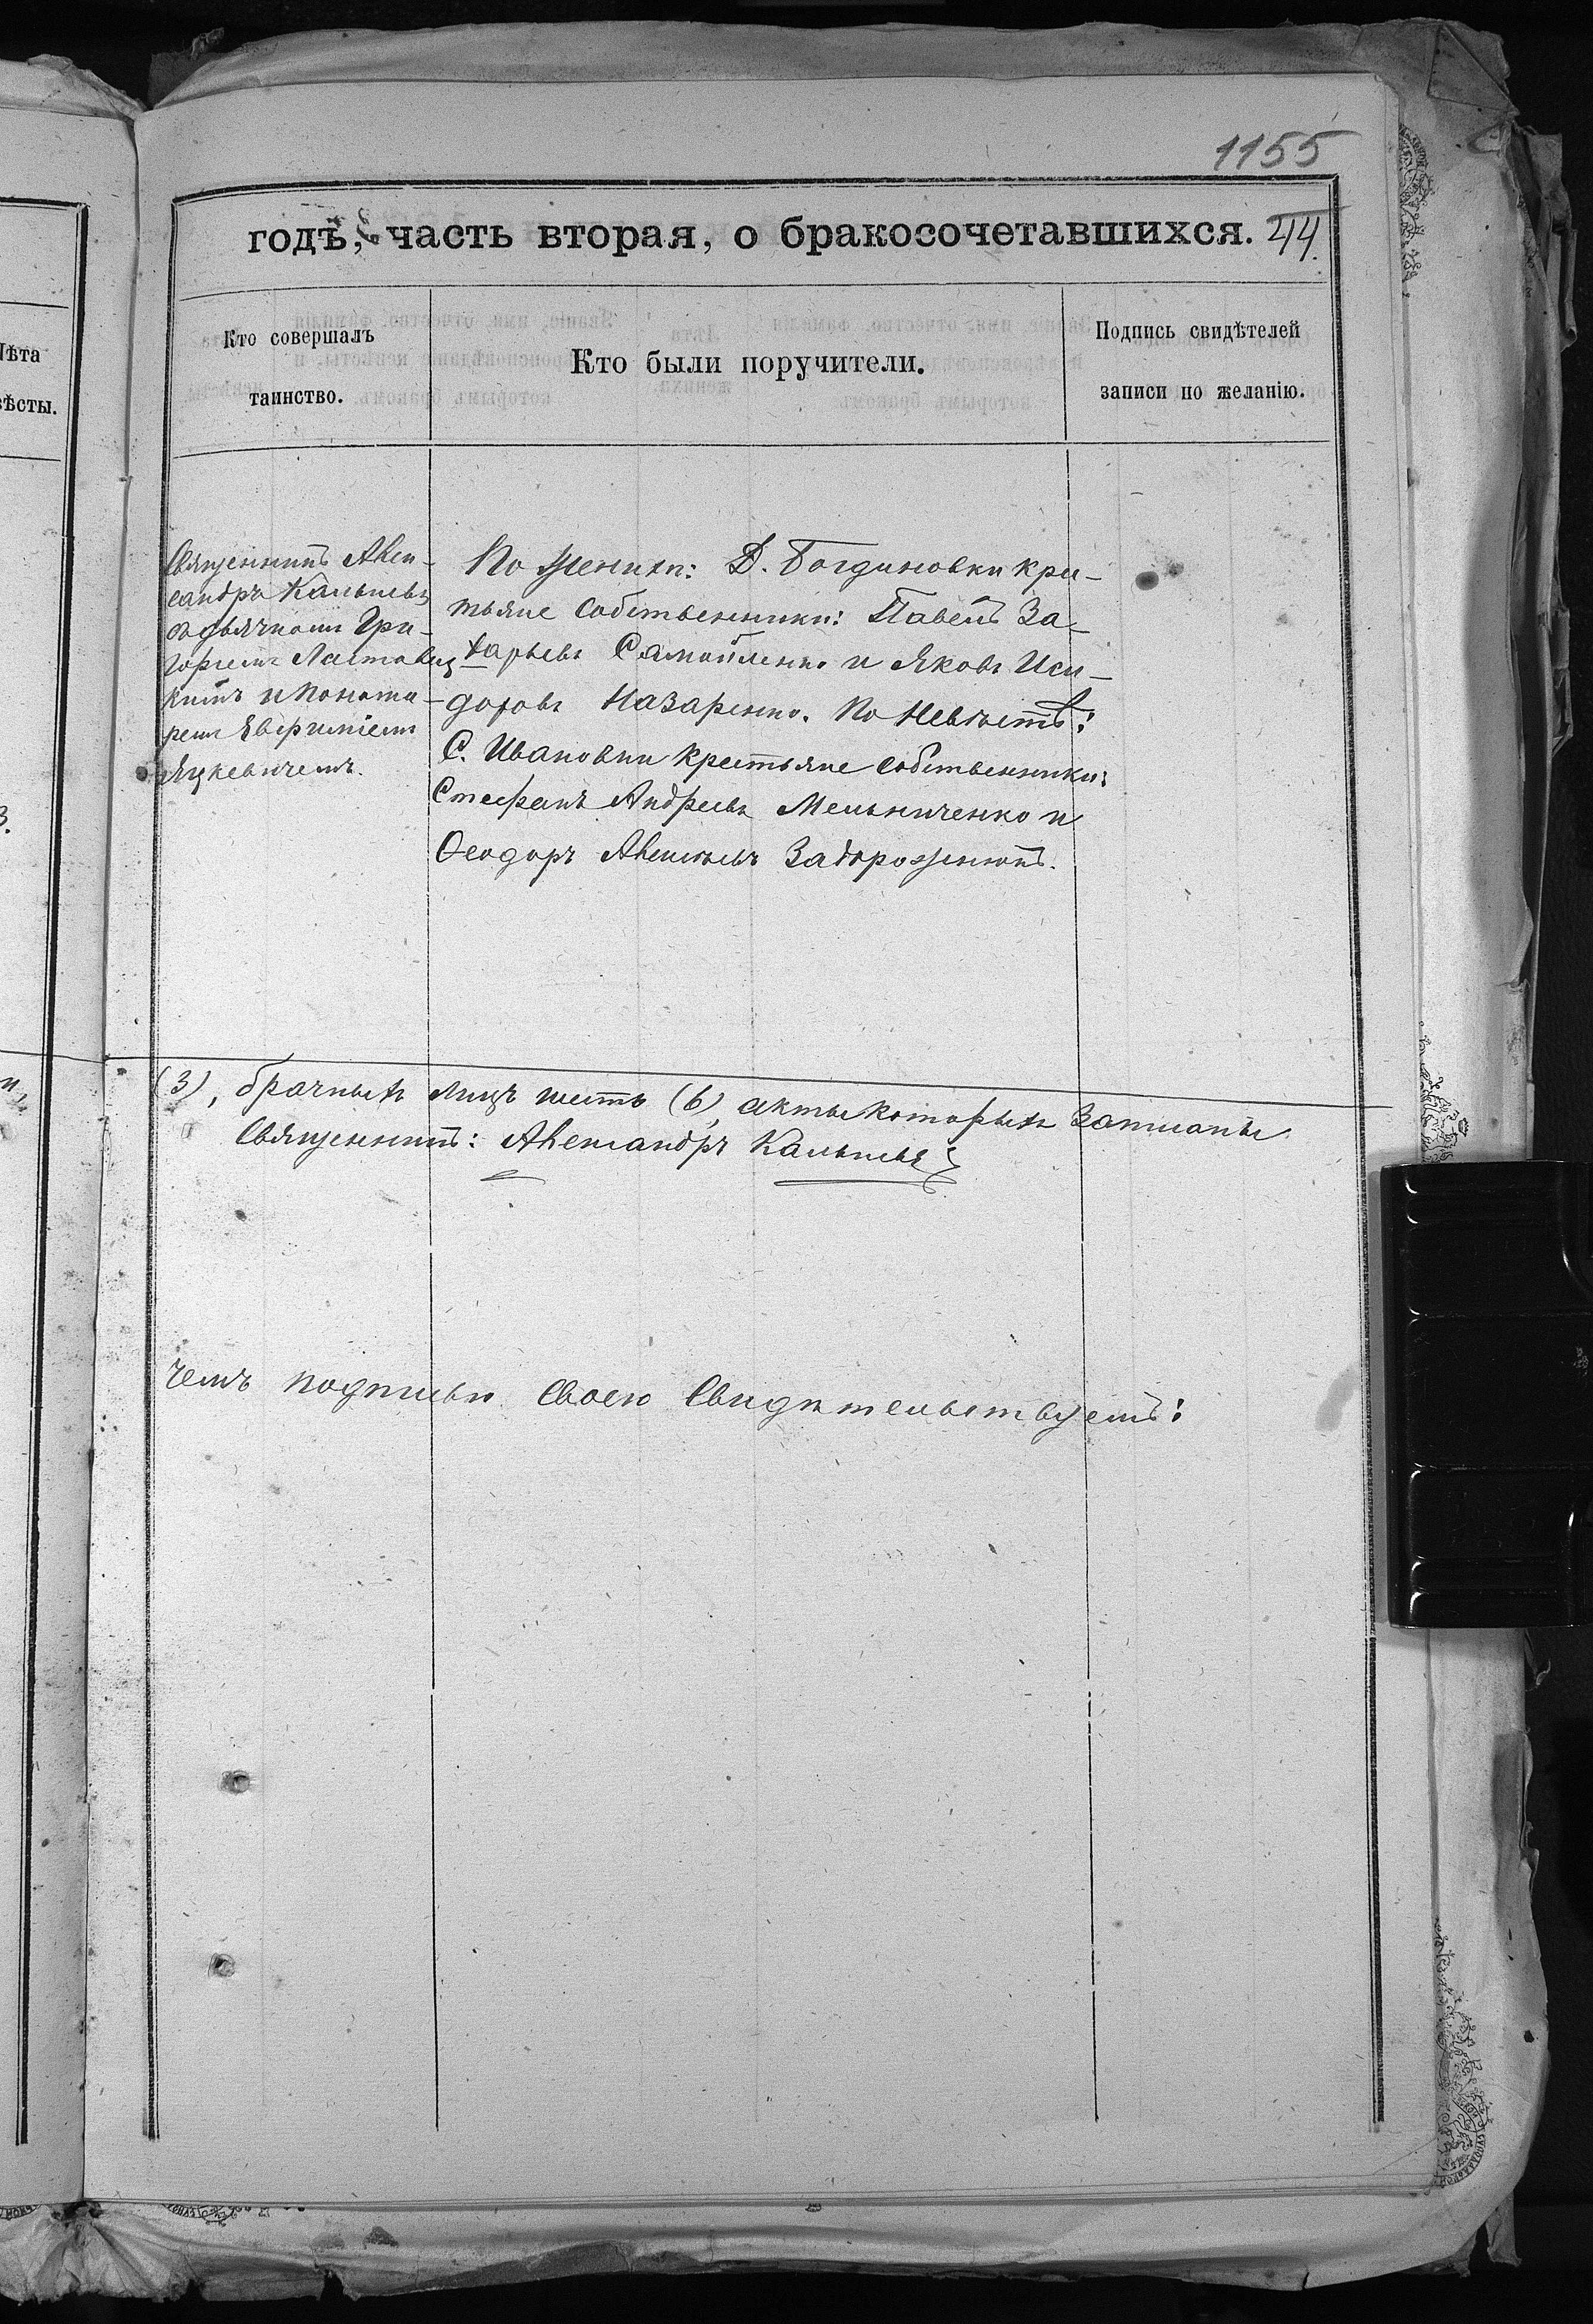 1155
годѣ, часть вторая, о бракосочетавшихся. 44.
Лѣта
вѣсты.
Кто совершалъ
таинство.
Кто были поручители.
Подпись свидѣтелей
записи по желанію.
Священникъ Алек-
сандръ Кальневъ
съ дьячкомъ Гри-
горіемъ Ластовец
кимъ и Понома-
ремъ Евфиміемъ
Яцкевичемъ.
По женихѣ: Д. Богдановки кре-
стьяне собственники: Павелъ За-
харьевъ Самойленко и Яковъ Иси-
доровъ Назаренко. По Невѣстѣ:
С. Ивановки крестьяне собственники:
Стефанъ Андреевъ Мельниченко и
Ѳеодоръ Алексѣевъ Задорожный.
(3), брачныхъ лицъ шесть (6), акты которыхъ записаны
Священникъ: Александръ Кальневъ
чемъ подписью своею свидѣтельствуемъ: